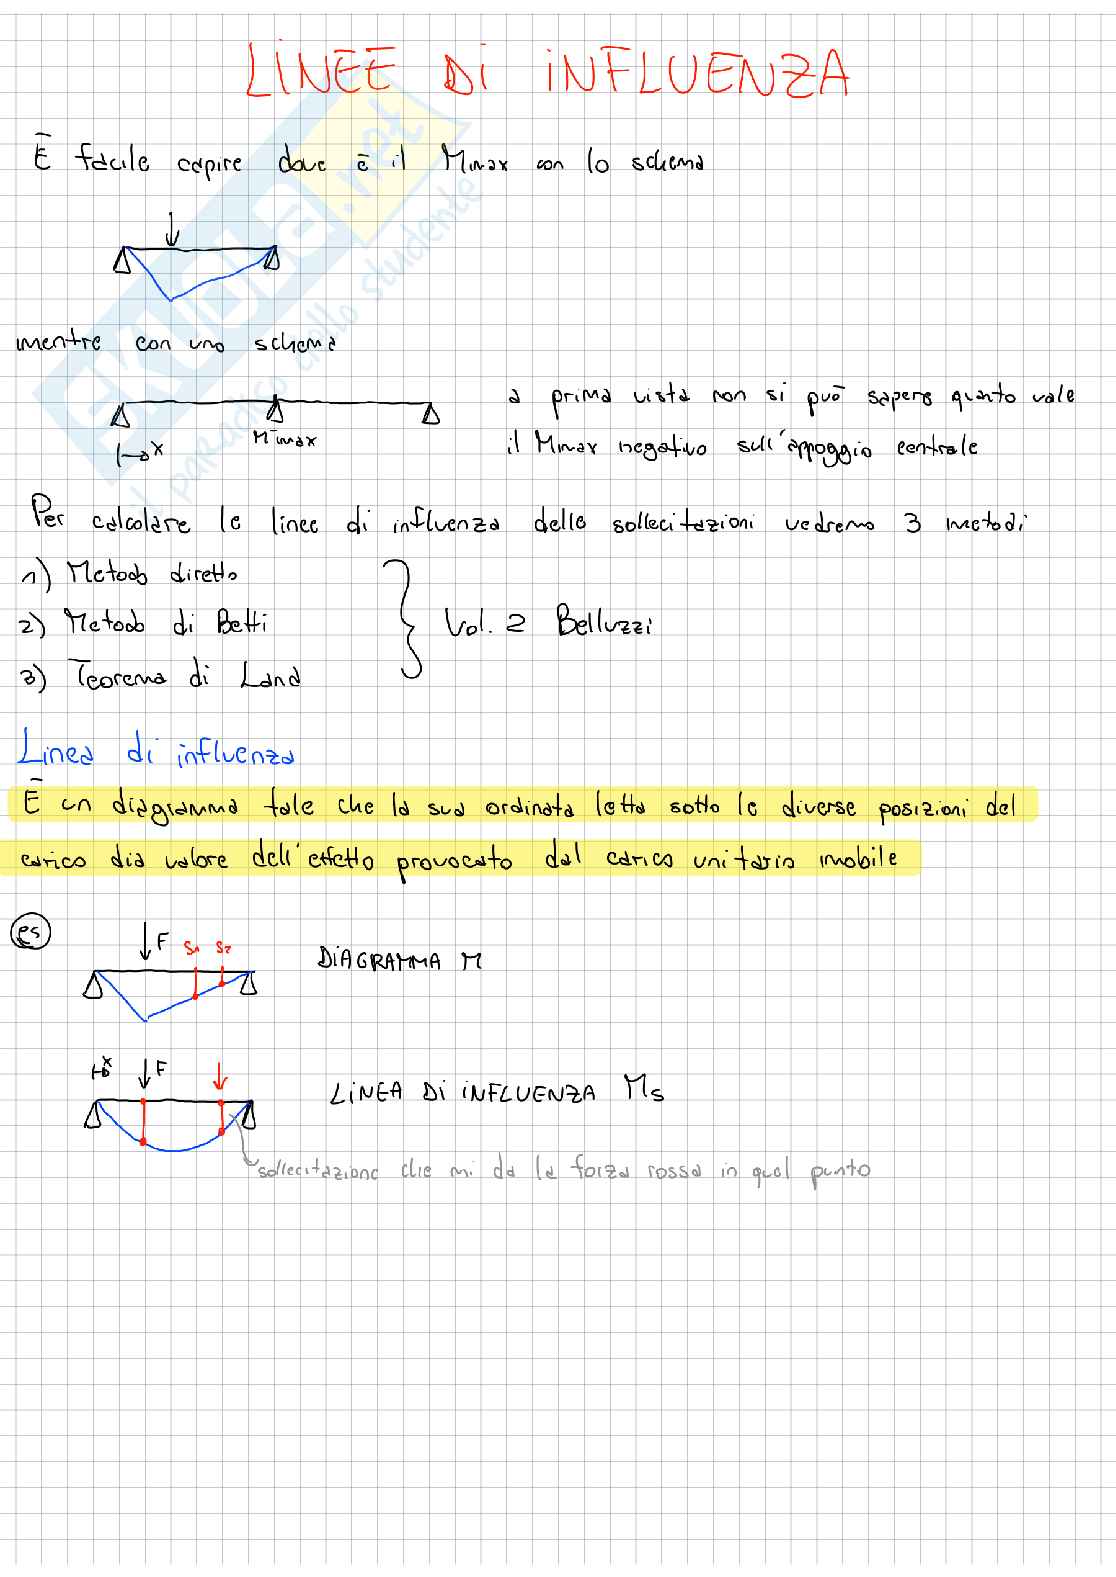 LINEE DI INFLUENZA
È facile capire dove è il Mmax con lo schema
mentre con uno schema
a prima vista non si può sapere quanto vale
il Mmax negativo sull'appoggio centrale
M⁻max
x
Per calcolare le linee di influenza delle sollecitazioni vedremo 3 metodi
1) Metodo diretto
2) Metodo di Betti
3) Teorema di Land
Vol. 2 Belluzzi
Linea di influenza
È un diagramma tale che la sua ordinata letta sotto le diverse posizioni del
carico dia valore dell'effetto provocato dal carico unitario mobile
es
F S1 S2
DIAGRAMMA M
x F
LINEA DI INFLUENZA Ms
sollecitazione che mi da la forza rossa in quel punto
SKUOLA.net
il paradiso dello studente